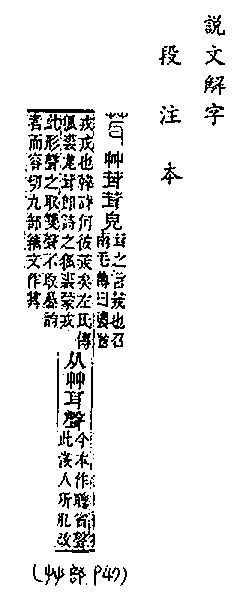 說文解字
段注本
茸 艸茸茸皃
茸之言茙也召
南毛傳曰襛猶
戎戎也韓詩何彼茙矣左氏傳
狐裘尨茸卽詩之狐裘蒙戎
从艸耳聲
今本作聰省聲
此淺人所肊改
此形聲之取雙聲不取㬪韵
者而容切九部籒文作
(艸部 P47)